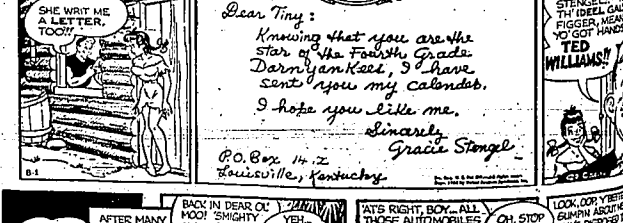 SHE WRIT ME
A LETTER,
TOO!!
Dear Tiny:
Knowing that you are the
star of the Fourth Grade
Darnyankeez, I have
sent you my calendar.
I hope you like me.
Sincerely
Gracie Stengel
P.O. Box 14.2
Louisville, Kentucky
8-1
STENGEL.
TH' IDEEL GAL
FIGGER, MEAN
YO' GOT HANDS
TED
WILLIAMS!!
AFTER MANY
BACK IN DEAR OL'
MOO! 'S MIGHTY
YEH...
'AT'S RIGHT, BOY...ALL
THOSE AUTOMOBILES
OH, STOP
LOOK, OOP, Y'BETE
SUMPIN ABOUT